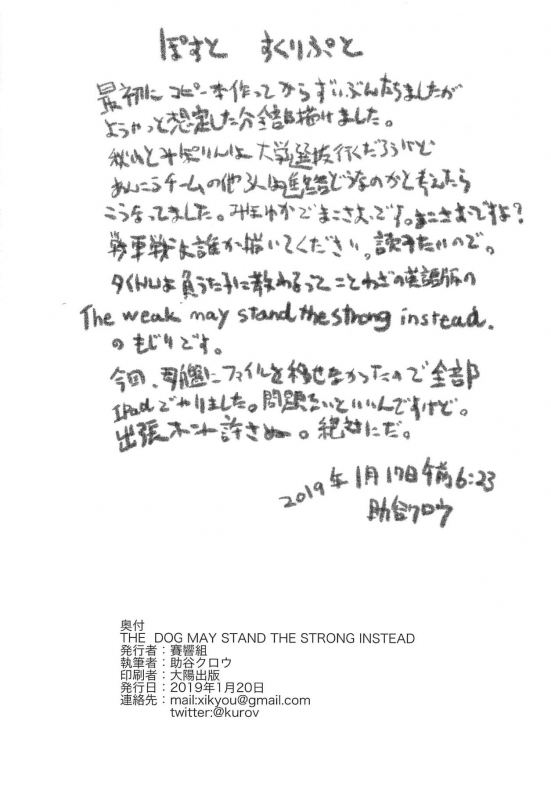 ぽすと すくりぷと
最初にコピー本作ってからずいぶんたちましたが
ようやっと想定した分全部描けました。
秋山とみぽりんは大学選抜行くだろうけど
あんこうチームの他3人は進路どうなのかと考えたら
こうなってました。みほゆかでまこさおです。まこさおですよ?
戦車戦は誰か描いてください。読みたいので。
タイトルは負うた子に教わるってことわざの英語版の
The weak may stand the strong instead.
のもじりです。
今回、母艦にファイルを移せなかったので全部
iPadでやりました。問題ないといいんですけど。
出張ホント許さぬー。絶対にだ。
2019年1月17日午前6:23
助谷クロウ
奥付
THE DOG MAY STAND THE STRONG INSTEAD
発行者:賽響組
執筆者:助谷クロウ
印刷者:大陽出版
発行日:2019年1月20日
連絡先:mail:xikyou@gmail.com
twitter:@kurov